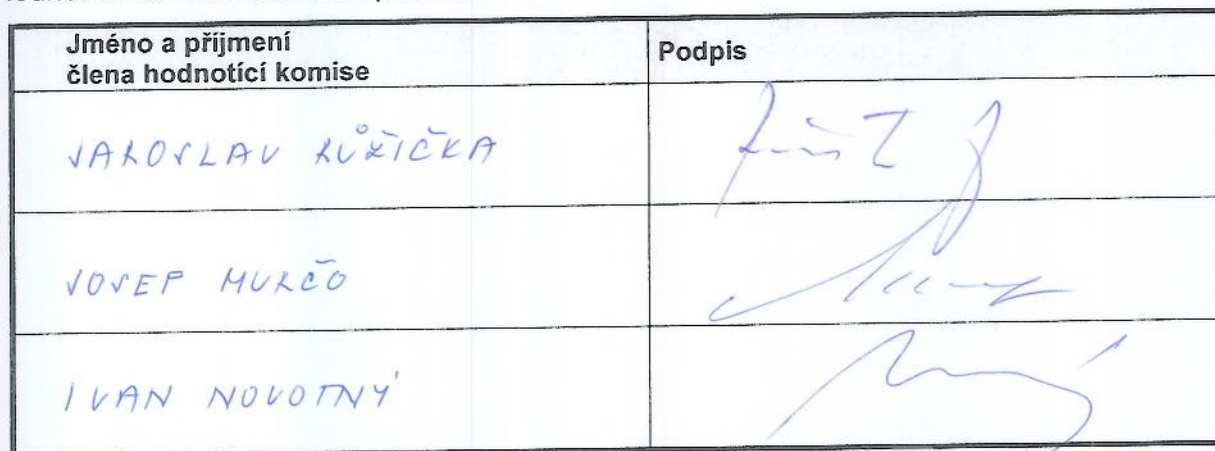 Jméno a příjmení
člena hodnotící komise
Podpis
JAROSLAV RŮŽIČKA
JOSEF MURČO
IVAN NOVOTNÝ